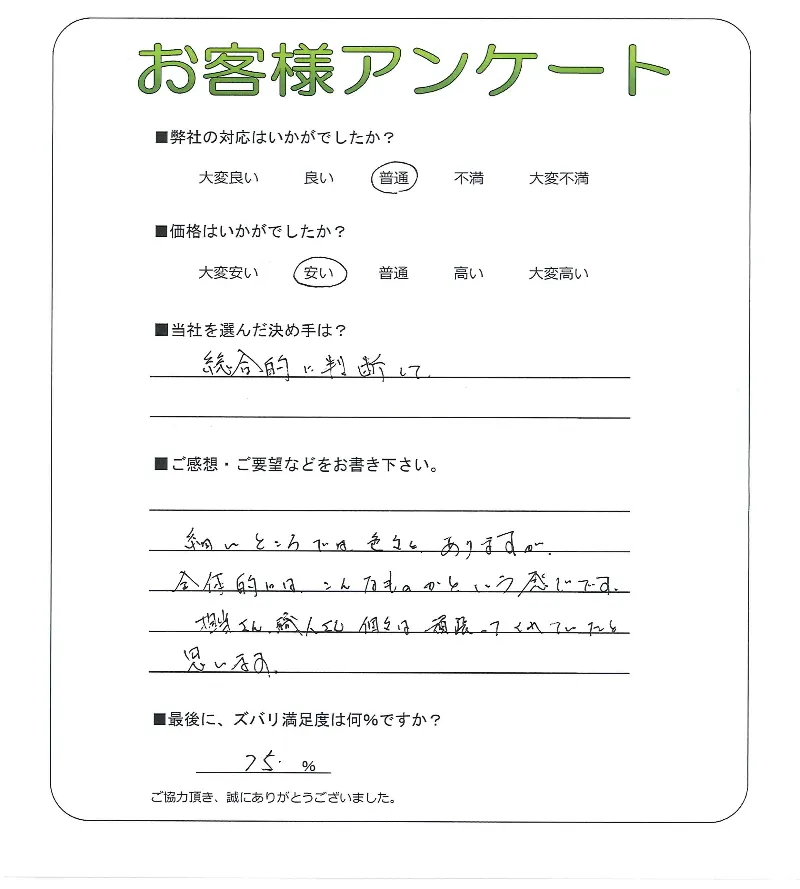 お客様アンケート
■弊社の対応はいかがでしたか？
大変良い 良い 普通 不満 大変不満
■価格はいかがでしたか？
大変安い 安い 普通 高い 大変高い
■当社を選んだ決め手は？
総合的に判断して
■ご感想・ご要望などをお書き下さい。
細いところでは、色々と、ありますが、
全体的には、こんなものかという感じです。
担当さん、職人さん 個々は 頑張ってくれていたと
思います。
■最後に、ズバリ満足度は何％ですか？
75. ％
ご協力頂き、誠にありがとうございました。